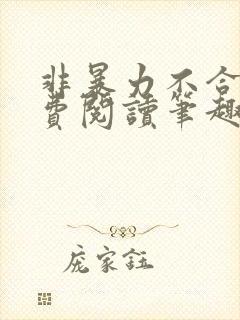 非暴力不合
費閱讀筆趣
庞家鈺